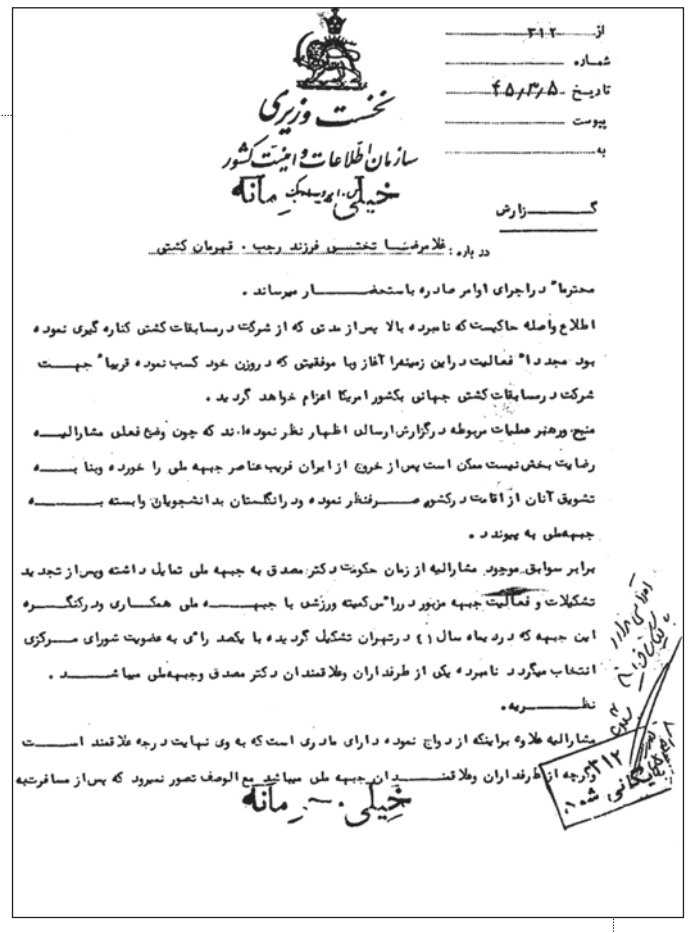 از ۳۱۲
شماره
تاریخ ۴۵/۳/۵
پیوست
به
نخست وزیری
سازمان اطلاعات و امنیت کشور
خیلی محرمانه
گــــزارش
درباره : غلامرضـا تختـی فرزند رجب ۰ قهرمان کشتی
محترما" دراجرای اوامر صادره باستحضــــار میرساند ۰
اطلاع واصله حاکیست که نامبرده بالا پس از مدتی که از شرکت درمسابقات کشتی کناره گیری نموده
بود مجددا" فعالیت دراین زمینه را آغاز وبا موفقیتی که دروزن خود کسب نموده قریبا" جهـــت
شرکت درمسابقات کشتی جهانی بکشور امریکا اعزام خواهد گردید ۰
منبع ورهبر عملیات مربوطه درگزارش ارسالی اظهار نظر نموده‌اند که چون وضع فعلی مشارالیـــه
رضایت بخش نیست ممکن است پس از خروج از ایران فریب عناصر جبهه ملی را خورده وبنا بـــه
تشویق آنان از اقامت درکشور صــــرفنظر نموده ودرانگلستان بدانشجویان وابسته بـــــه
جبهه‌ملی به پیوندد ۰
برابر سوابق موجود مشارالیه از زمان حکومت دکتر مصدق به جبهه ملی تمایل داشته وپس از تجدید
تشکیلات و فعالیت جبهه مزبور درراس کمیته ورزشی با جبهـــه ملی همکــاری ودرکنگـــره
این جبهه که در دیماه سال ۴۱ درتهران تشکیل گردیده با یکصد رای به عضویت شورای مــرکزی
انتخاب میگردد نامبرده یکی از طرفداران وعلاقمندان دکتر مصدق وجبهه‌ملی میباشـــد ۰
نظــــریه۰
مشارالیه علاوه براینکه ازدواج نموده دارای مادری است که به وی نهایت درجه علاقمند اســـت
وگرچه از طرفداران وعلاقمنـــدان جبهه ملی میباشد مع الوصف تصور نمیرود که پس از مسافرت‌به
خیلی محرمانه
۳۱۲
بایگانی شود